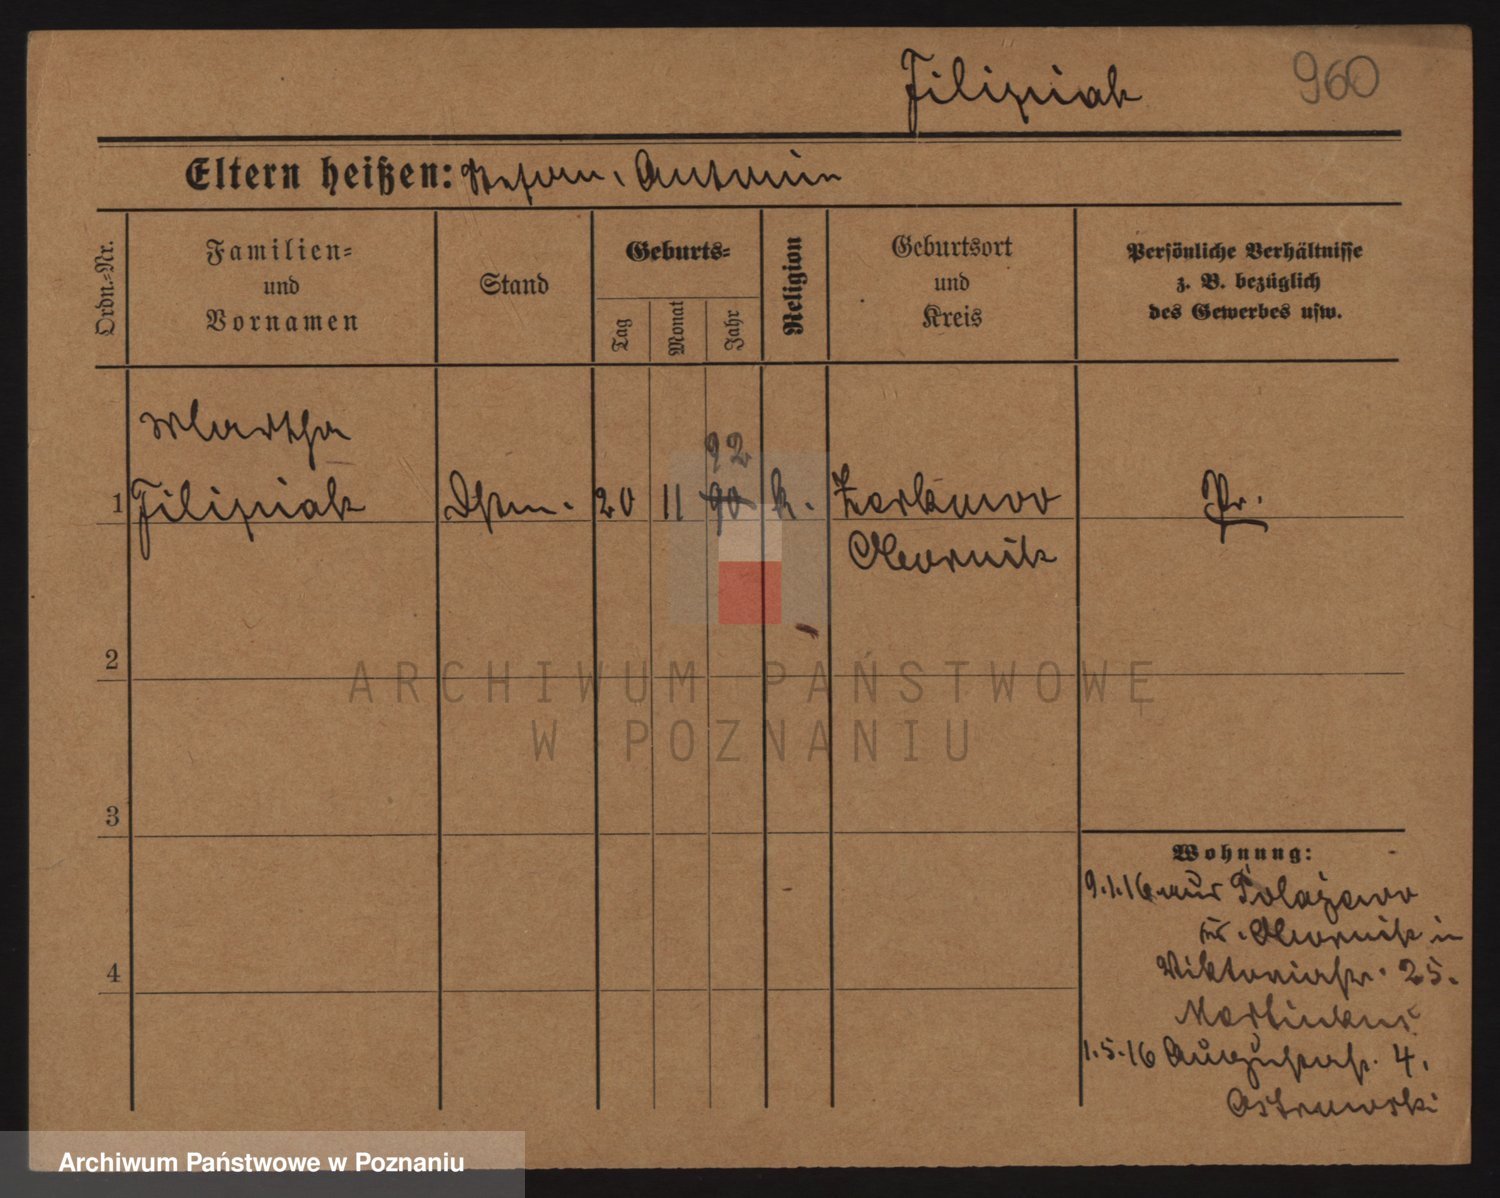 Filipiak 960
Eltern heißen: Stefan, Antonin
Ordn.=Nr.
Familien=
und
Vornamen
Stand
Geburts=
Tag
Monat
Jahr
Religion
Geburtsort
und
Kreis
Persönliche Verhältnisse
z. B. bezüglich
des Gewerbes usw.
Martha
92
1 Filipiak 20 11 90 k. Zerkuwo Pr.
Obornik
2
3
4
Wohnung:
9.1.16 aus Połajewo
Kr. Obornik in
Viktoriastr. 25.
1.5.16 Augustastr. 4.
Ostrowski
ARCHIWUM PAŃSTWOWE
W POZNANIU
Archiwum Państwowe w Poznaniu